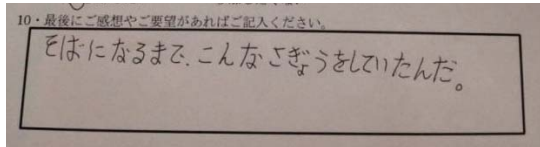 10・最後にご感想やご要望があればご記入ください。
そばになるまで、こんなさぎょうをしていたんだ。